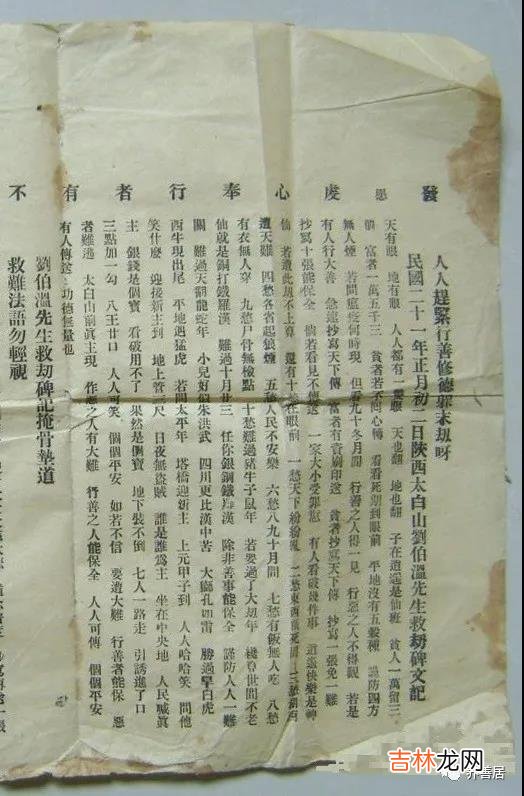 發虔心奉行者有不
人人趕緊行善修德避末劫呀
民國二十一年正月初二日陝西太白山劉伯溫先生救劫碑文記
天有眼 地有眼 人人都有一雙眼 天也翻 地也翻 子在逍遙是仙班 貧人一萬留三
個 富者一萬五千三 貧者若不回心轉 看看死期到眼前 平地沒有五穀種 謹防四方
無人煙 若問瘟疫何時現 但看九十冬月間 行善之人得一見 行惡之人不得觀 若是
有人行大善 急速抄寫天下傳 富者有資刷印送 貧者抄寫天下傳 抄寫一張免一難
抄寫十張能保全 倘若看見不傳送 一家大小受罪愆 有人看破幾件事 逍遙快樂是神
仙 若遭此劫不上算 還有十愁在眼前 一愁天下紛紛亂 二愁東西餓死 三愁湖
遭天難 四愁各省起狼煙 五愁人民不安樂 六愁八九十月間 七愁有飯無人吃 八愁
有衣無人穿 九愁尸骨無檢點 十愁難過猪牛子鼠年 若要過了大劫年 纔算世間不老
仙就是銅打鐵羅漢 難過十月廿三 任你銀鋼鐵羅漢 除非善事能保全 謹防人人一難
關 難過天翻龍蛇年 小兒好似朱洪武 四川更比漢中苦 大獅孔如雷 勝過早白虎
西牛現出尾 平地遇猛虎 若問太平 塔橋迎新主 上元甲子到 人人哈哈笑 問他
笑什麽 迎接新主到 地上管三尺 日夜無盜賊 誰是誰爲主 坐在中央地 人民喊眞
主 銀錢是個寶 看破用不了 果然是個寶 地下裝不倒 七人一路走 引誘進了口
三點加一勾 八王廿口 人人可笑 個個平安 如若不信 要遭大難 行善者能保 惡
者難逃 太白山前真主現 作惡之人有大難 行善之人能保全 人人可傳 個個平安
有人傳送 功德無量也
劉伯溫先生救劫碑記掩骨墊道
救難法語勿輕視
吉林龙网